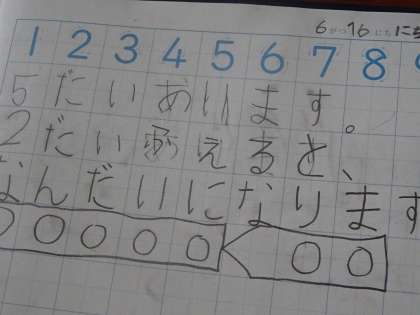 6がつ16にち
1 2 3 4 5 6 7 8 9
5だいあります。
2だいふえると、
なんだいになります